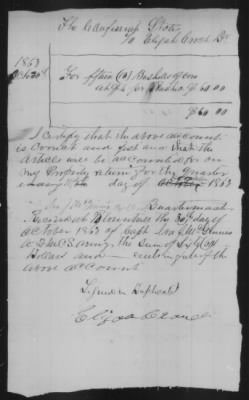 The Confederate States
To Elijah Cross Dr
1863
For fifteen (15) Bushels corn
at $4 per Bushel $60.00
$60.00
I certify that the above account
is correct and just and that the
articles will be accounted for on
my Property return for the quarter
ending day of October 1863
Quartermaster
Received at Blountville the 30th day of
October 1863 of Capt
A. Q.M. C.S. Army, the Sum of Sixty
Dollars and cents in full of the
above account
Signed in Duplicate